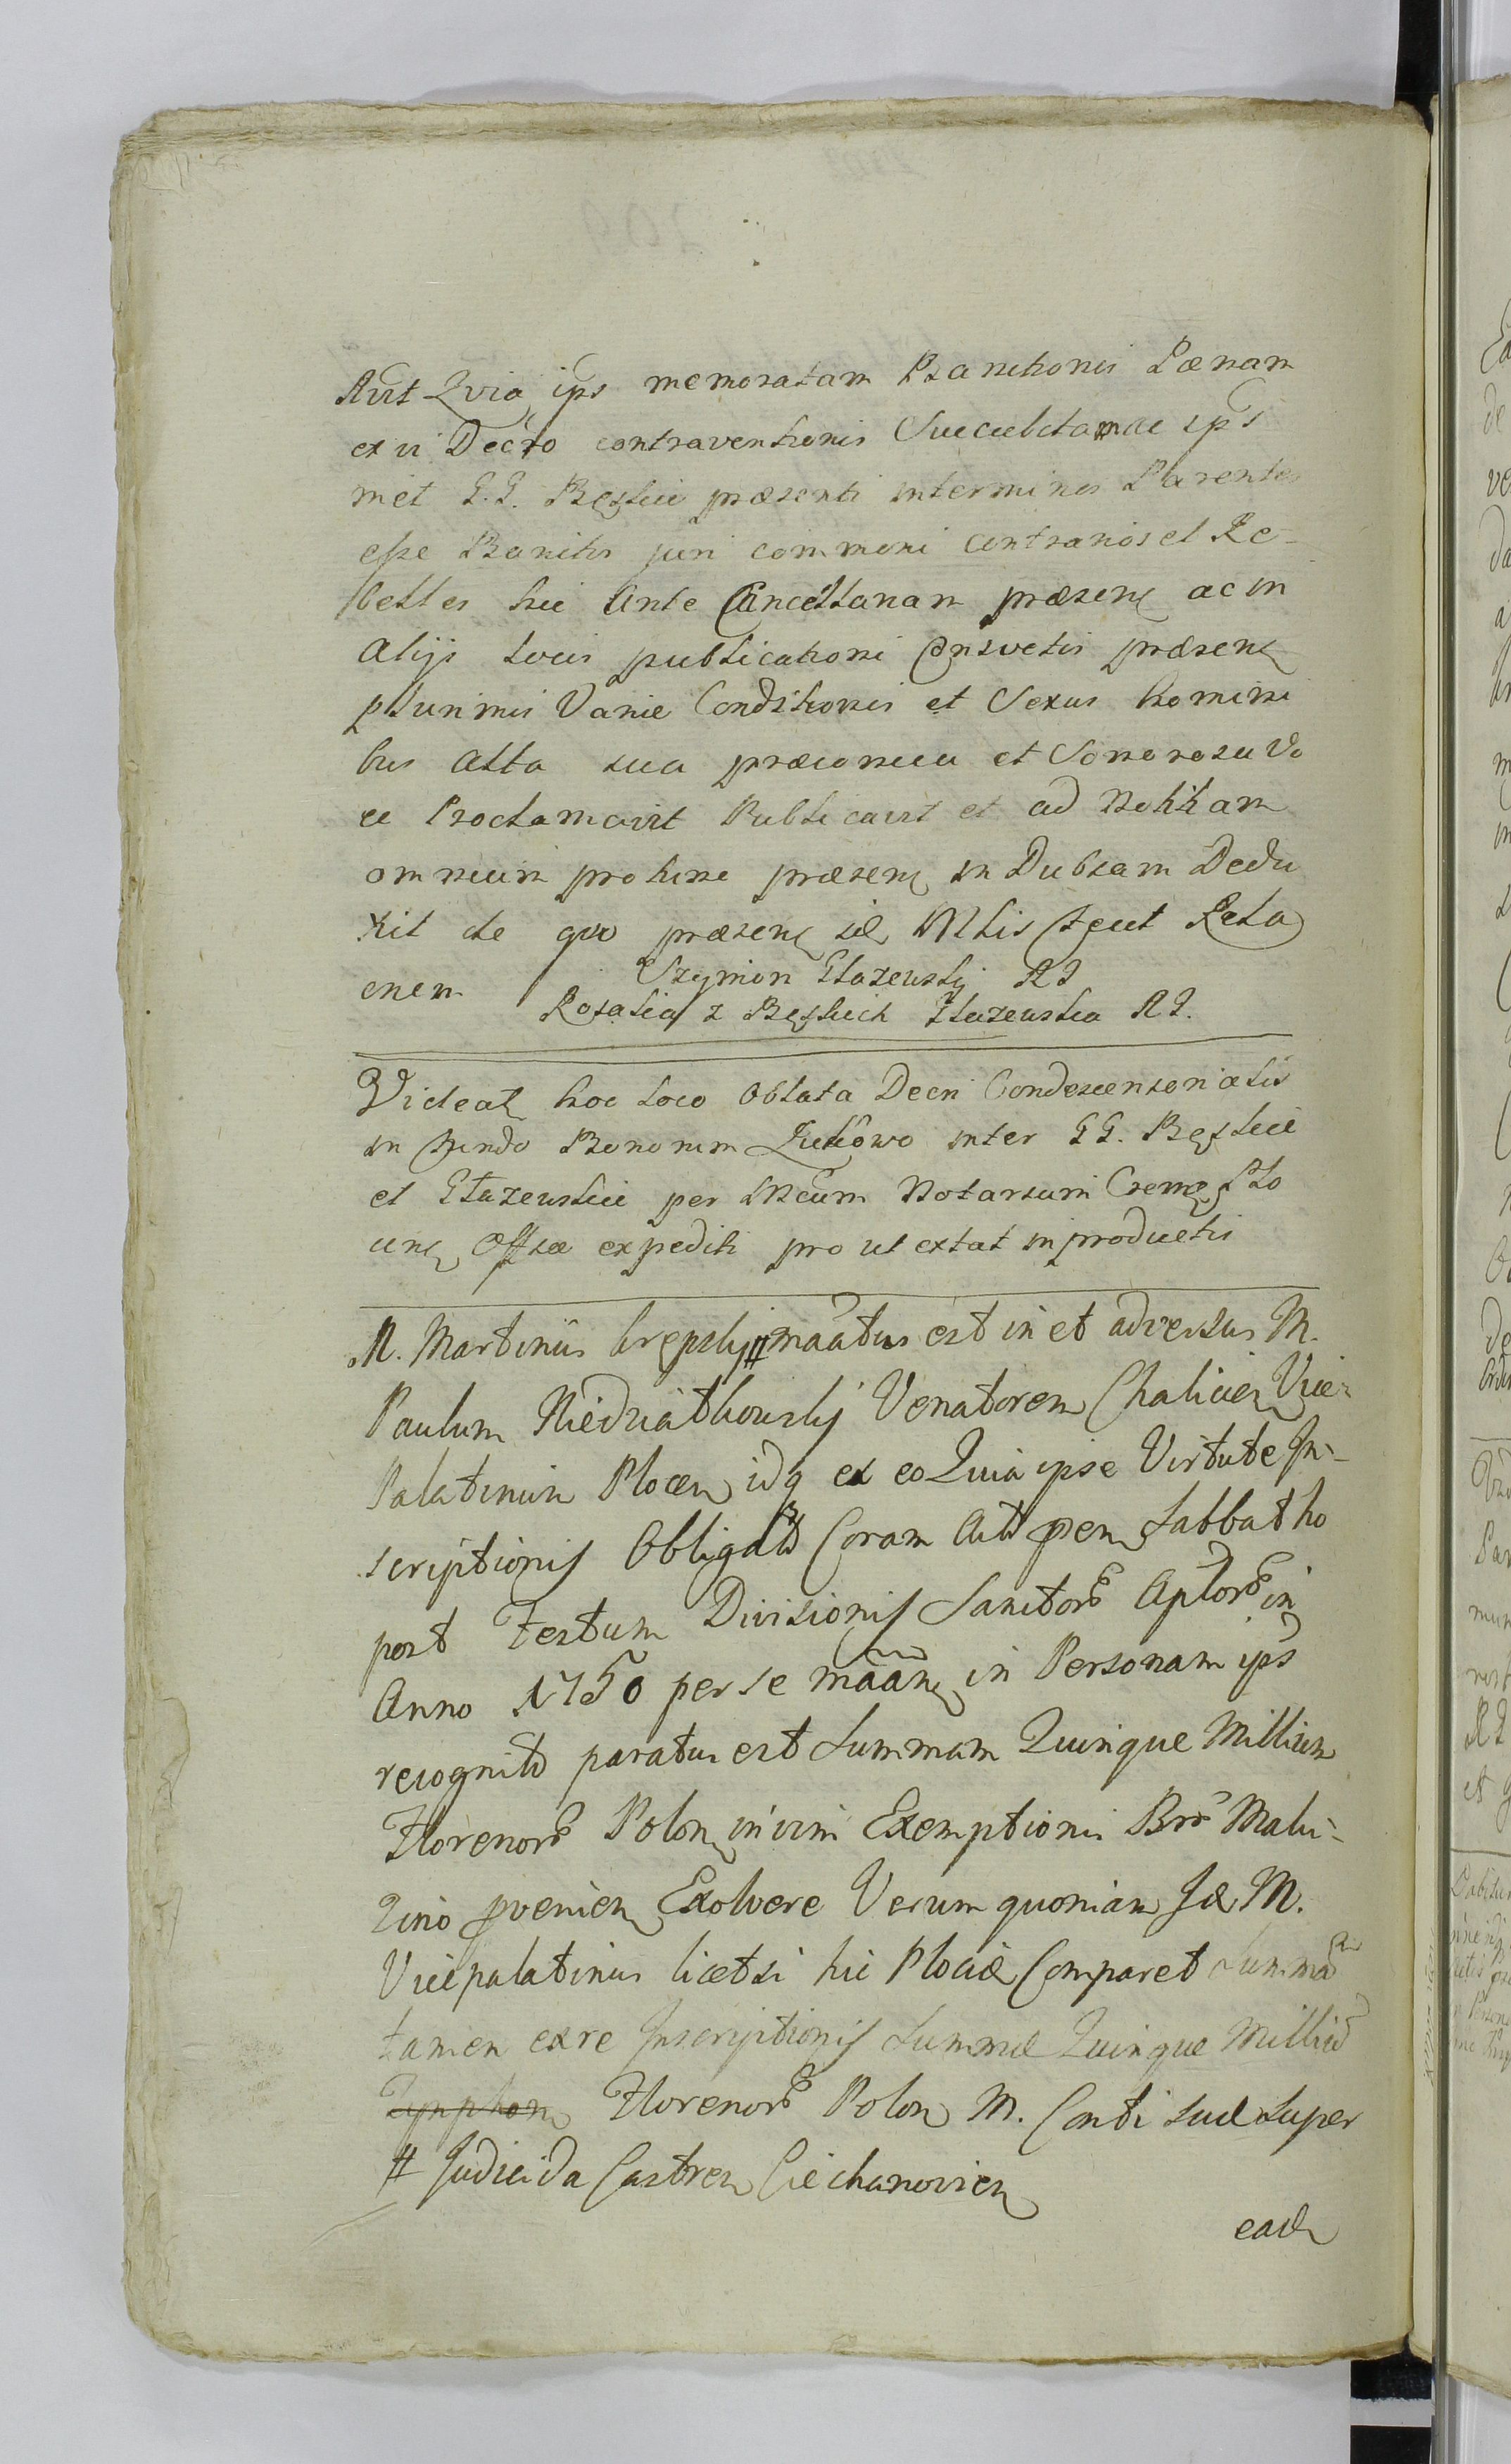 Aut Quia ips memoratam Bannitionis Pænam
ex vi Decto contraventionis Succubitamae ips
met G.G. Bęskie præsenti interminis Parentes
esse Banitos juri communi contrarios et Re-
belles hic Ante Cancellariam præsen ac in
alijs locis publicationi Consvetis præsen
plurimis Variæ Conditionis et Sexus homini
bus alta sua præconica et Sonorosa Vo
ce Proclamavit Publicavit et ad Notitiam
omnium protunc præsen in Dubiam Dedu
xit de quo præsen sũ Mlis fecit Rela
onem Szymon Głazewskij RI
Rosalia z Bęskich Głazewska RI.
Videat hoc Loco Oblata Decri Condescensorialis
in fundo Bonorum Zukowo inter GG. Bęskie
et Głazewskie per MScum Notarium Crem Plo
cen Offsæ expediti pro ut extat in productis
M. Martinus Krępskij # maatus est in et adversus M.
Paulum Niedziałkowskij Venatorem Chalicien Vice-
Palatinum Plocen idq ex eo Quia ipse Virtute In-
scriptionis Obligato Coram Actis pen Sabbatho
post Festum Divisionis Sanctor Aptlor in
Anno 1750 per se maan in Personam ips
recognito paratus est Summam Quinque Millium
Florenor Polon in vim Exemptionis Br Malu-
zino pvenien Exolvere Verum quoniam Id M.
Vicepalatinus licet si hic Plociæ Comparet Summa
tamen exre Inscriptionis Summæ Quinque Milliũ
Tynphon Florenor Polon M. Conti suæ super
# Judicida Castren Ciechanovien
eadn